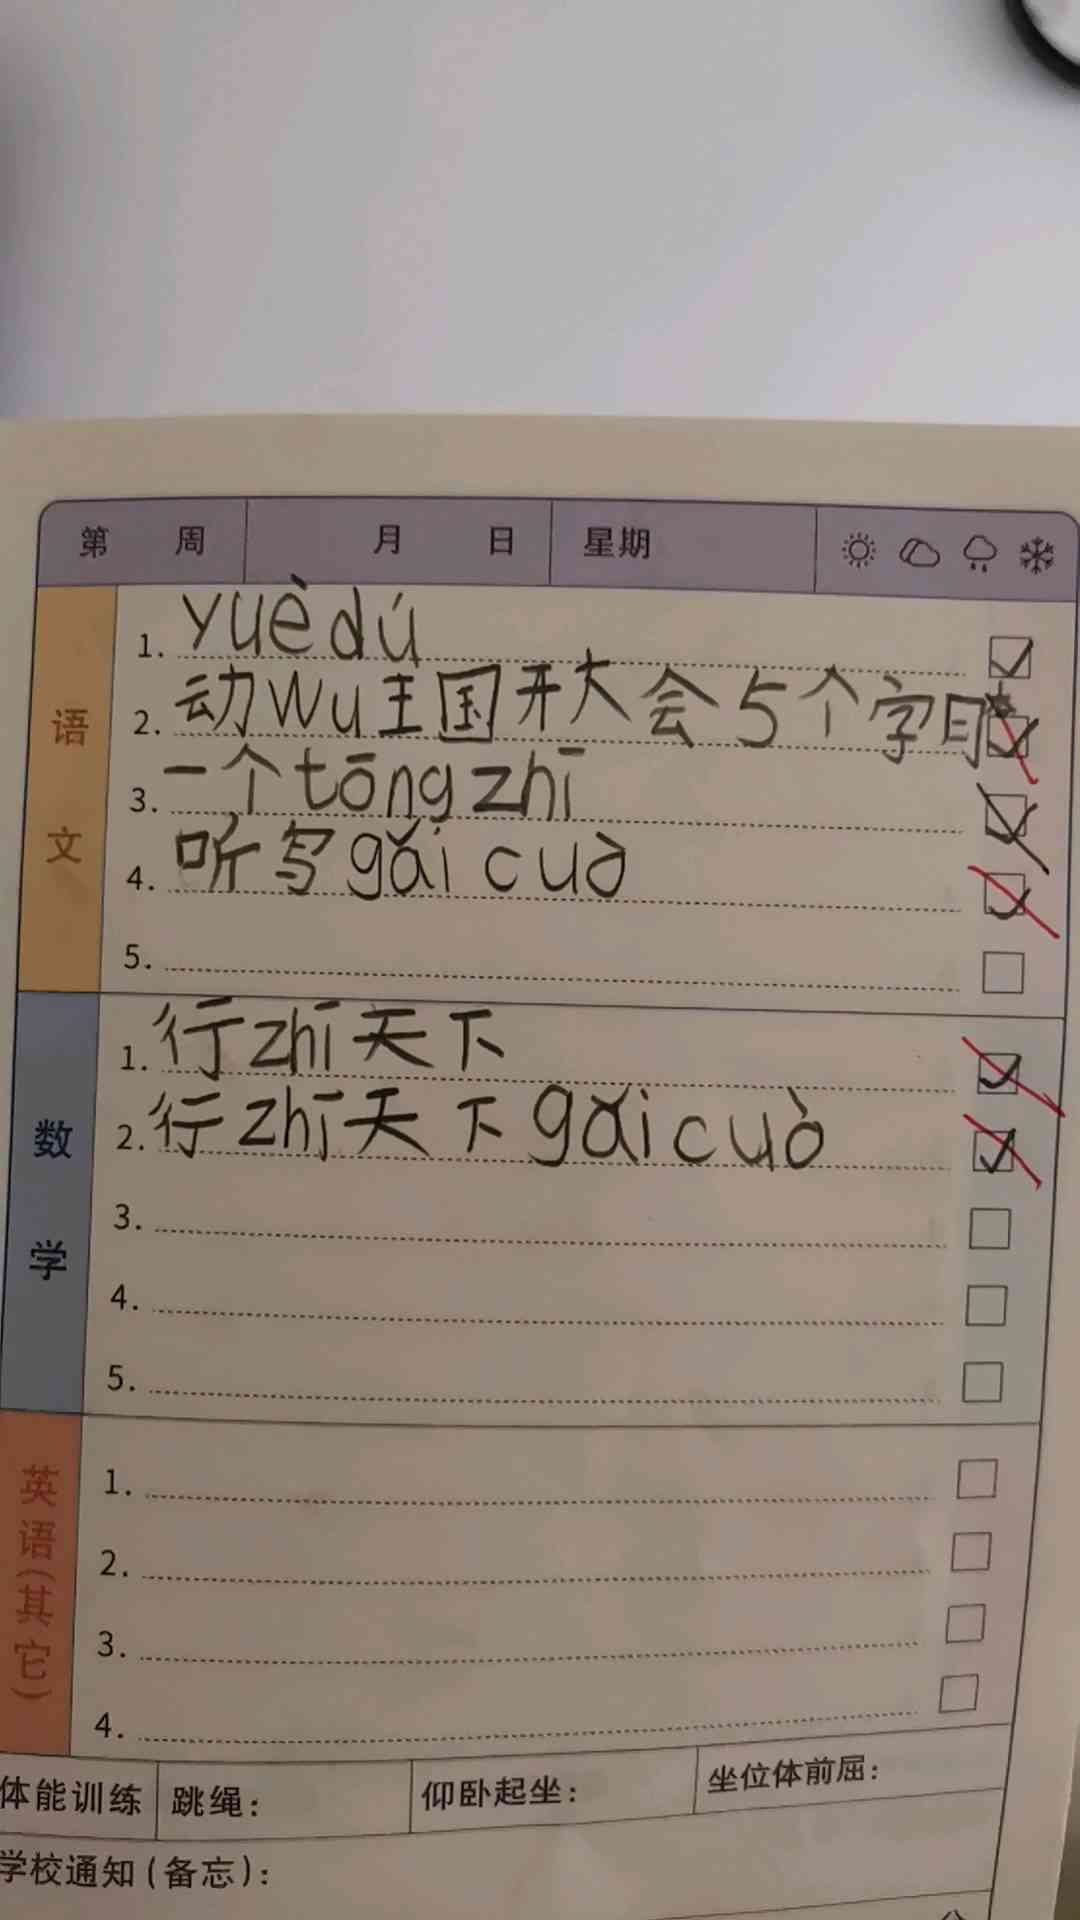 第 周 月 日 星期
语文
1. yuèdú
2. 动wu王国开大会5个字
3. 一个tōngzhī
4. 听写gǎicuò
5.
数学
1. 行zhī天下
2. 行zhī天下gǎicuò
3.
4.
5.
英语(其它)
1.
2.
3.
4.
体能训练 跳绳: 仰卧起坐: 坐位体前屈:
学校通知(备忘):